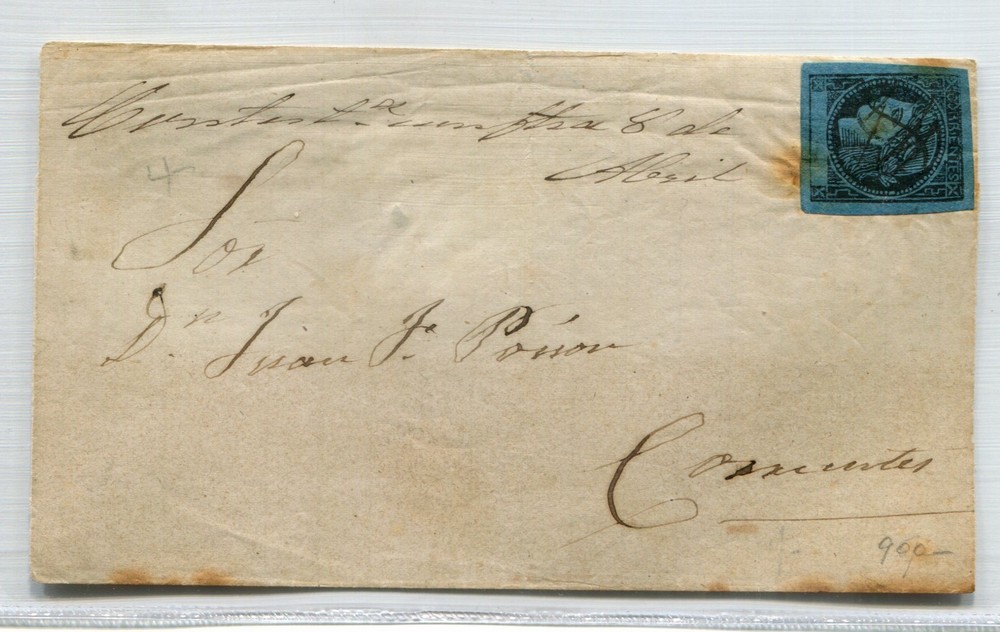 Contest.ᵃ en ftra 8 de
Abril
4
Sor
Dⁿ. Juan J. Poisson
Corrientes
CORRIENTES
900-